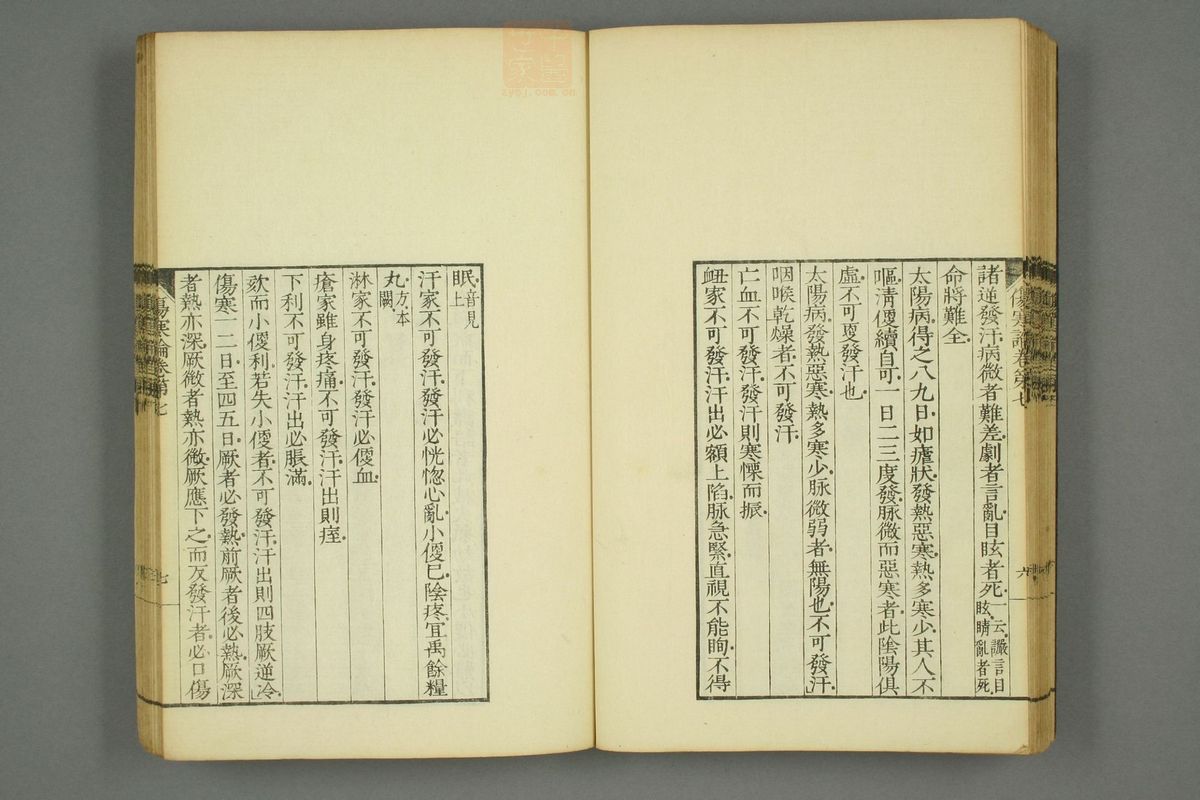 傷寒論卷第七
六
諸逆發汗病微者難差劇者言亂目眩者死一云讝言目眩睛亂者死
命將難全
太陽病得之八九日如瘧狀發熱惡寒熱多寒少其人不
嘔清便續自可一日二三度發脉微而惡寒者此陰陽俱
虛不可更發汗也
太陽病發熱惡寒熱多寒少脉微弱者無陽也不可發汗
咽喉乾燥者不可發汗
亡血不可發汗發汗則寒慄而振
衄家不可發汗汗出必額上陷脉急緊直視不能眴不得
眠音見上
汗家不可發汗發汗必恍惚心亂小便已陰疼宜禹餘糧
丸方本闕
淋家不可發汗發汗必便血
瘡家雖身疼痛不可發汗汗出則痓
下利不可發汗汗出必脹滿
欬而小便利若失小便者不可發汗汗出則四肢厥逆冷
傷寒一二日至四五日厥者必發熱前厥者後必熱厥深
者熱亦深厥微者熱亦微厥應下之而反發汗者必口傷
傷寒論卷第七
七
zysj.com.cn